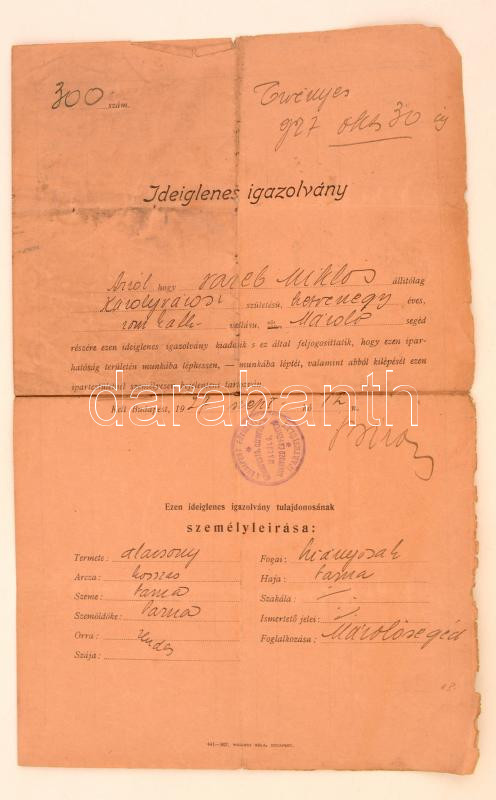 300 szám.
Érvényes
927 okt 30 ig
Ideiglenes igazolvány
Arról hogy Miklós állitólag
Károlyvárosi születésü, hetvenegy éves,
rom kath vallásu, segéd
részére ezen ideiglenes igazolvány kiadatik s ez által feljogosittatik, hogy ezen ipar-
hatóság területén munkába léphessen, — munkába léptét, valamint abból kilépését ezen
ipartestületnél személyesen bejelenteni tartozván.
Kelt Budapest, 1927 sept hó 12 n.
darabanth
Ezen ideiglenes igazolvány tulajdonosának
személyleirása:
Termete: alacsony
Arcza: hosszas
Szeme: barna
Szemöldöke: barna
Orra: rendes
Szája:
Fogai: hiányosak
Haja: barna
Szakála: ·/·
Ismertető jelei: ·/·
Foglalkozása: Márolósegéd